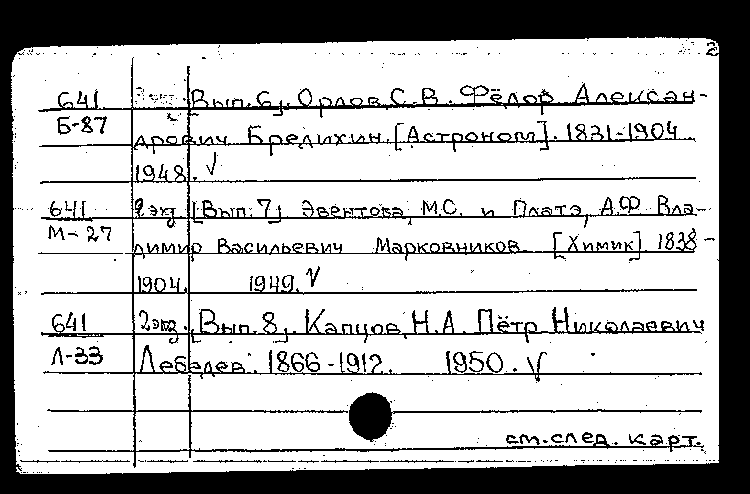 2
641 2 экз. [Вып. 6]. Орлов, С.В. Фёдор Алексан-
Б-87 дрович Бредихин. [Астроном]. 1831-1904.
1948. √
641 2 экз. [Вып. 7]. Эвентова, М.С. и Платэ, А.Ф. Вла-
М-27 димир Васильевич Марковников. [Химик]. 1838-
1904. 1949. √
641 2 экз. [Вып. 8]. Капцов, Н.А. Пётр Николаевич
Л-33 Лебедев. 1866-1912. 1950. √
см. след. карт.